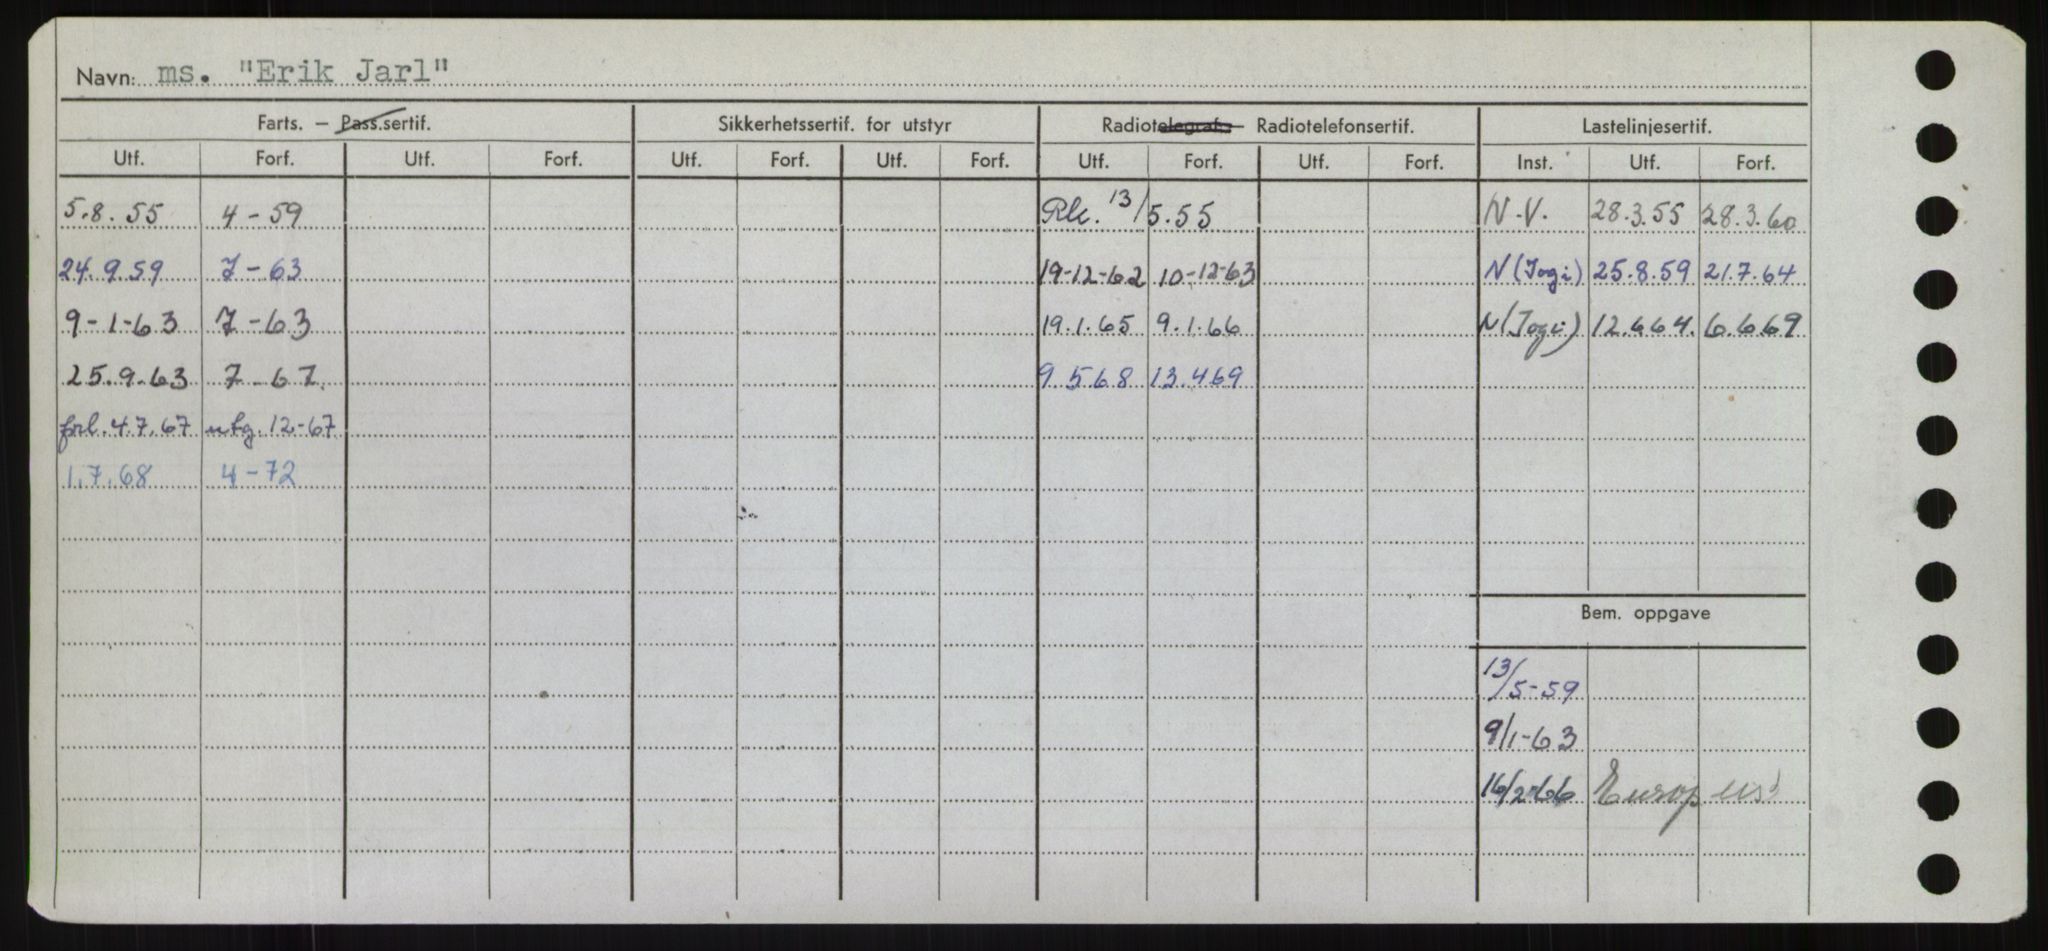 Navn: ms. "Erik Jarl"
Farts. – Pass.sertif. Sikkerhetssertif. for utstyr Radiotelegraf- Radiotelefonsertif. Lastelinjesertif.
Utf. Forf. Utf. Forf. Utf. Forf. Utf. Forf. Utf. Forf. Utf. Forf. Inst. Utf. Forf.
5.8.55 4-59 13/5.55 N.V. 28.3.55 28.3.60
24.9.59 7-63 19-12-62 10-12-63 N(Jogi) 25.8.59 21.7.64
9-1-63 7-63 19.1.65 9.1.66 N(Jogi) 12.6.64. 6.6.69
25.9.63 7-67. 9.5.68 13.4.69
forl. 4.7.67 utg. 12-67
1.7.68 4-72
Bem. oppgave
13/5-59
9/1-63
16/2-66 Europ